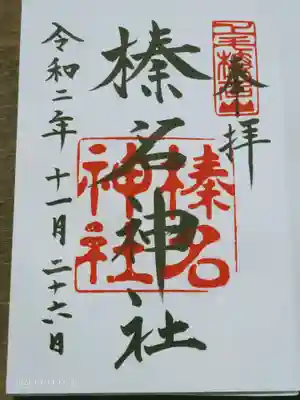 奉拝
榛名神社
榛名
神社
令和二年 十一月 二十六日